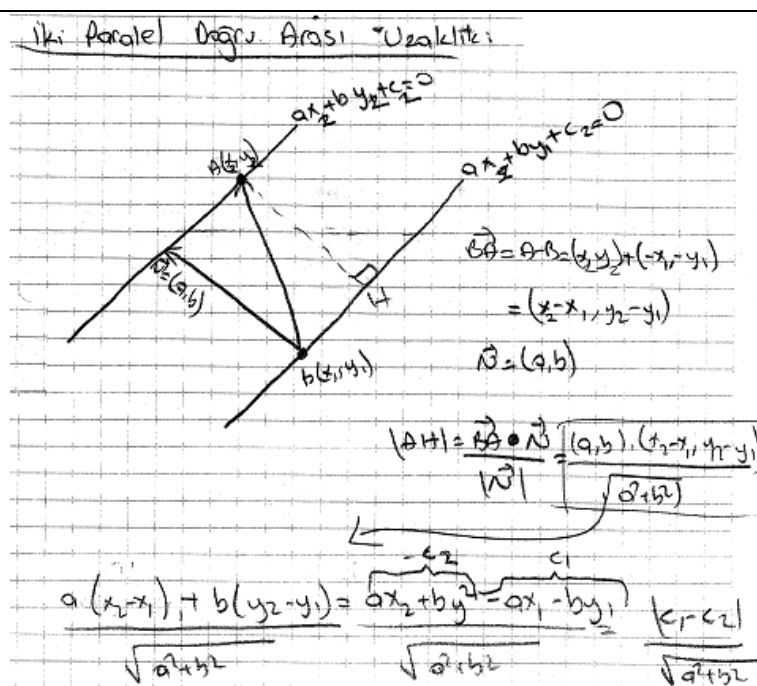 İki Paralel Doğru Arası Uzaklık:
ax₂+by₂+c₂=0
ax₂+by₁+c₂=0
A(x₂,y₂)
N⃗=(a,b)
H
b(x₁,y₁)
B⃗A=A-B=(x₂,y₂)+(-x₁,-y₁)
=(x₂-x₁, y₂-y₁)
N⃗=(a,b)
|AH|= B⃗A•N⃗ / |N⃗| = (a,b).(x₂-x₁, y₂-y₁) / √(a²+b²)
-c₂ c₁
a(x₂-x₁)+b(y₂-y₁) / √(a²+b²) = ax₂+by²-ax₁-by₁ / √(a²+b²) = |c₁-c₂| / √(a²+b²)